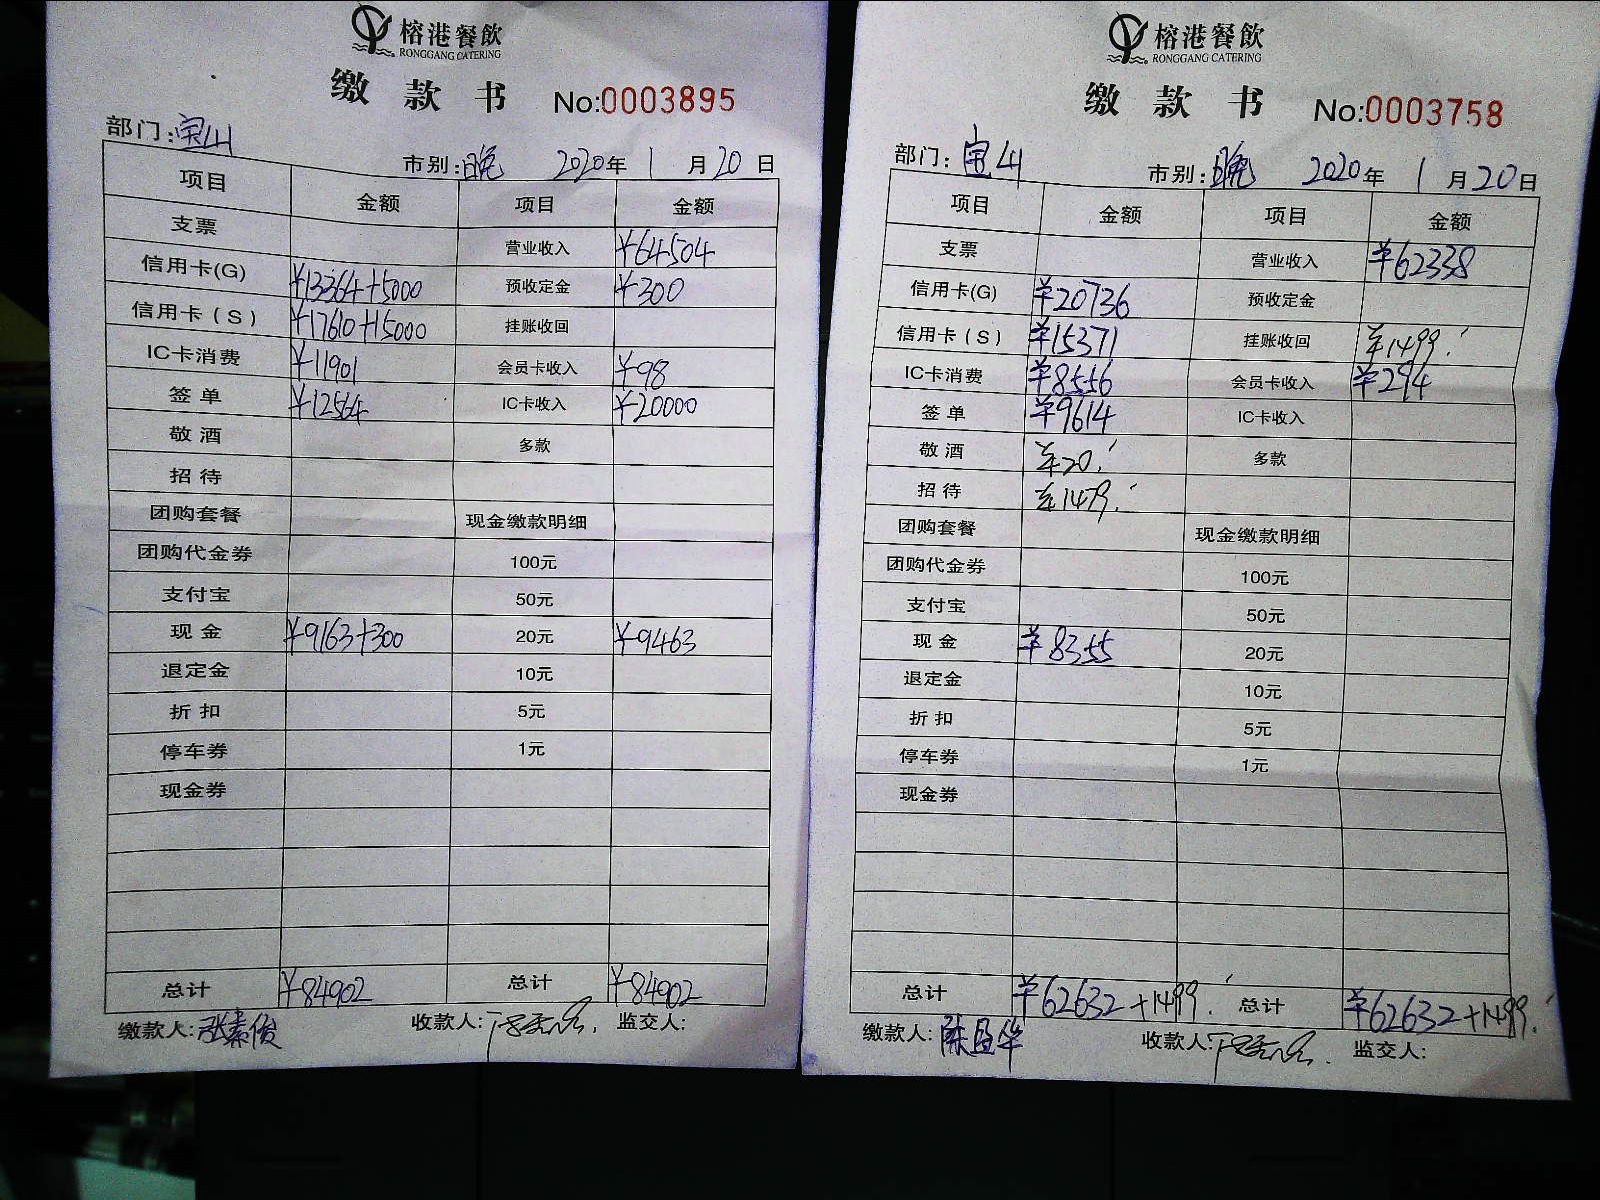 榕港餐飲
RONGGANG CATERING
缴款书 No:0003895
部门:宝山
市别:晚 2020年1月20日
项目 金额 项目 金额
支票 营业收入 ¥64504
信用卡(G) ¥13364+5000 预收定金 ¥300
信用卡(S) ¥17610+15000 挂账收回
IC卡消费 ¥11901 会员卡收入 ¥98
签单 ¥12564 IC卡收入 ¥20000
敬酒 多款
招待
团购套餐 现金缴款明细
团购代金券 100元
支付宝 50元
现金 ¥9163+300 20元 ¥9463
退定金 10元
折扣 5元
停车券 1元
现金券
总计 ¥84902 总计 ¥84902
缴款人:张素俊 收款人: 监交人:
榕港餐飲
RONGGANG CATERING
缴款书 No:0003758
部门:宝山
市别:晚 2020年1月20日
项目 金额 项目 金额
支票 营业收入 ¥62338
信用卡(G) ¥20736 预收定金
信用卡(S) ¥15371 挂账收回 ¥1499.
IC卡消费 ¥8556 会员卡收入 ¥294
签单 ¥9614 IC卡收入
敬酒 ¥20. 多款
招待 ¥1479.
团购套餐 现金缴款明细
团购代金券 100元
支付宝 50元
现金 ¥8355 20元
退定金 10元
折扣 5元
停车券 1元
现金券
总计 ¥62632+1499. 总计 ¥62632+1499.
缴款人:陈昌华 收款人: 监交人: